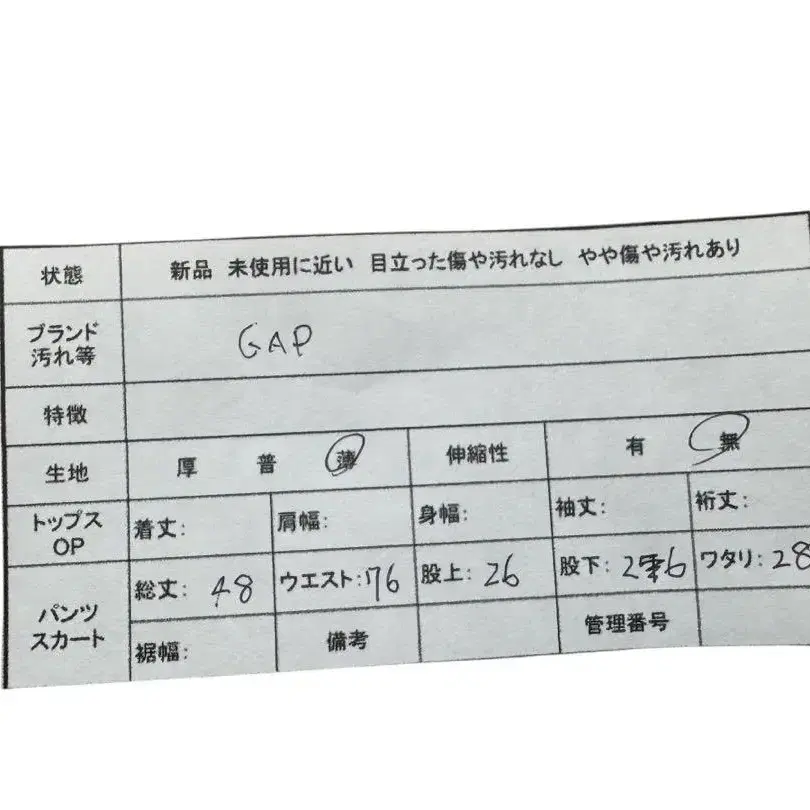 状態 新品 未使用に近い 目立った傷や汚れなし やや傷や汚れあり
ブランド
汚れ等 GAP
特徴
生地 厚 普 薄 伸縮性 有 無
トップス
OP 着丈: 肩幅: 身幅: 袖丈: 裄丈:
パンツ
スカート
総丈: 48 ウエスト: 76 股上: 26 股下: ワタリ: 28
裾幅: 備考 管理番号